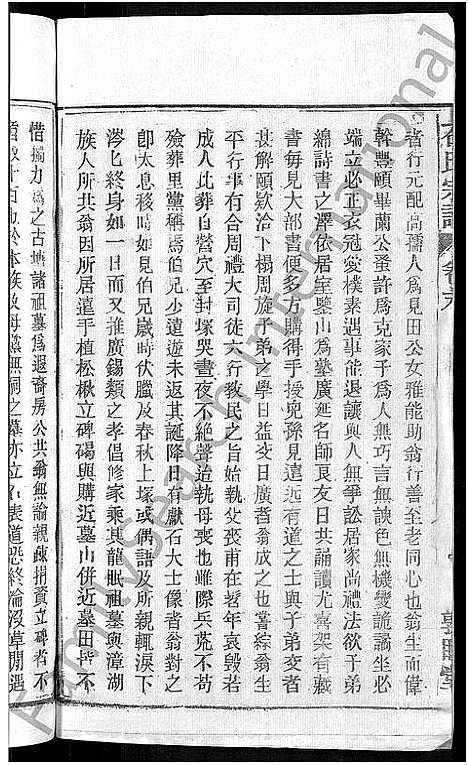 者行元配高孺人爲見田公女雅能助翁行善至老同心也翁生而偉
幹豐頤畢蘭公蚤許爲克家子爲人無巧言無諛色無機變詭譎坐必
端立必正衣冠愛樸素遇事能退讓與人無爭訟居家尚禮法欲子弟
綿詩書之澤依居室鑒山爲塾廣延名師良友日共誦讀尤喜架有藏
書每見大部書不惜多方購得手授兒孫見遠近有道之士與子弟交
甚解頤欵洽下榻周旋子弟之學日益交日廣者翁成之也翁
平行事有合周禮大司徒六行教民之旨始執父喪甫在茗年哀毀若
成人此葬自營穴至封塚哭晝夜不絕聲迨執母喪也雖際兵荒不苟
殮葬里黨稱焉伯兄少遠遊未返其誕降日有獻石大士像者翁對之
卽太息移時如見伯兄歲時伏臘及春秋上塚或偶語及所親輒淚下
涔匕終身如一日而又推廣錫類之孝倡修家乘其龍眠祖墓與漳湖
族人所共翁因所居遠手植松楸立碑碣與購近墓山併近墓田皆不
惜獨力爲之古塘諸祖墓爲遐裔房公共翁無論親疎捐資立碑者不
百數十百也於本族及母黨無嗣之墓亦立石表道恐終淪沒草間遇
氏宗譜
FamilySearch International